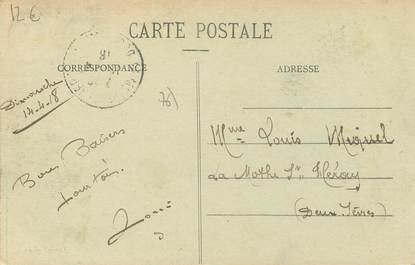 12 €
CARTE POSTALE
CORRESPONDANCE
ADRESSE
Dimanche
14-4-18
Bons Baisers
pour toi.
Mme Louis
La Mothe St Héray
(Deux-Sèvres)